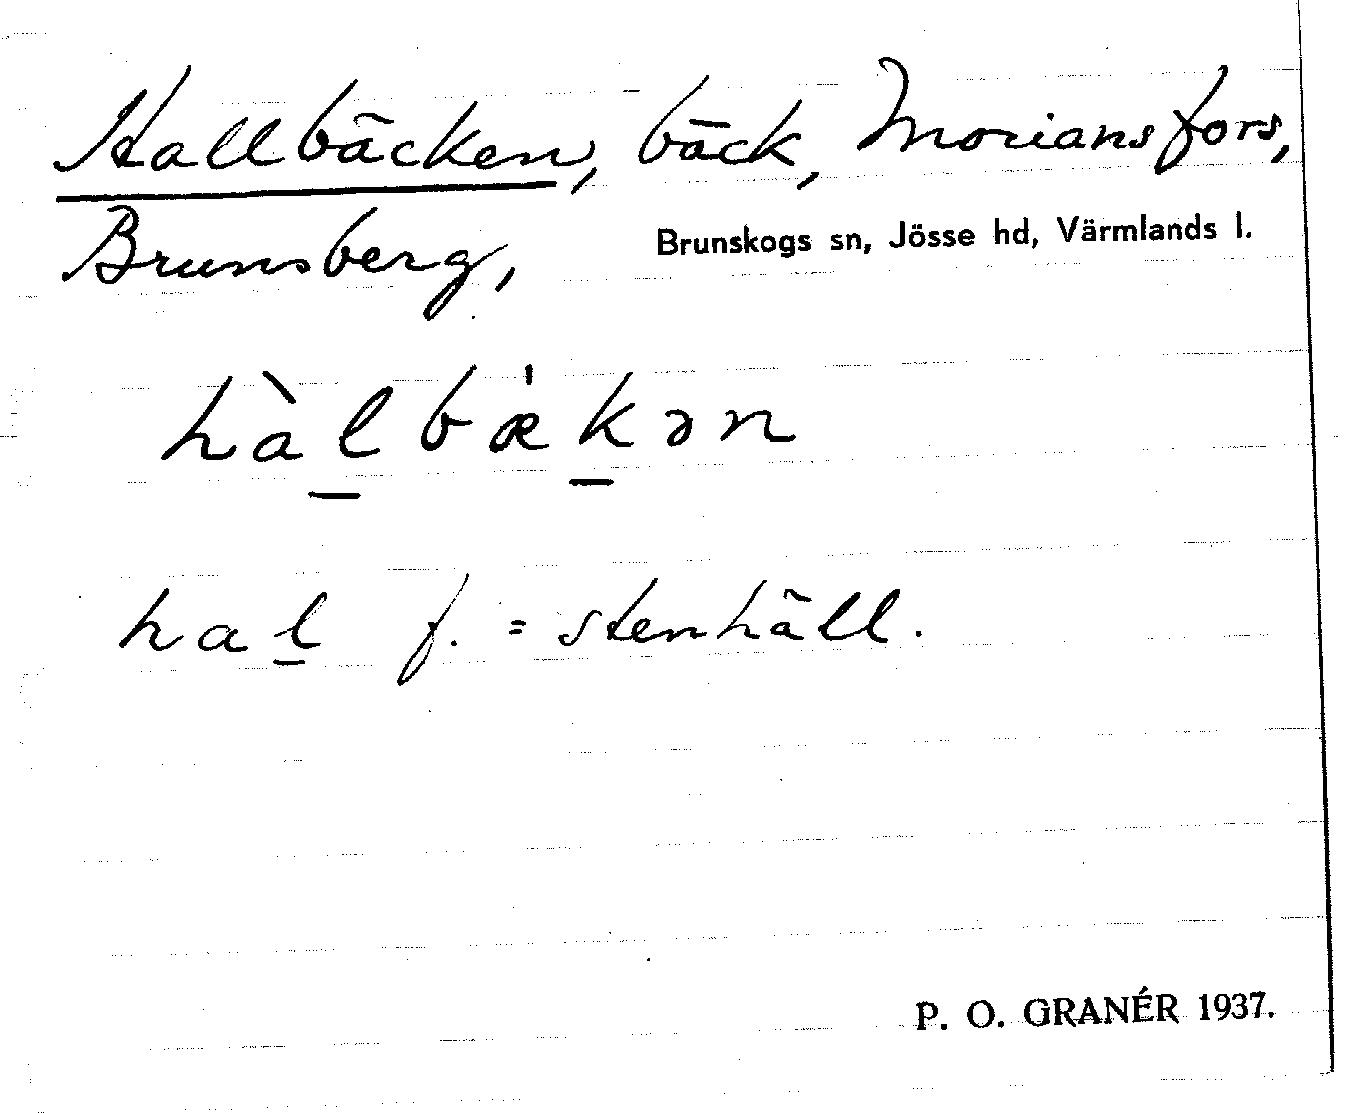 Hallbäcken, bäck, Moriansfors,
Brunsberg,
Brunskogs sn, Jösse hd, Värmlands l.
hàl̲bæ̍k̲ən
hal̲ f. = stenhäll.
P. O. GRANÉR 1937.